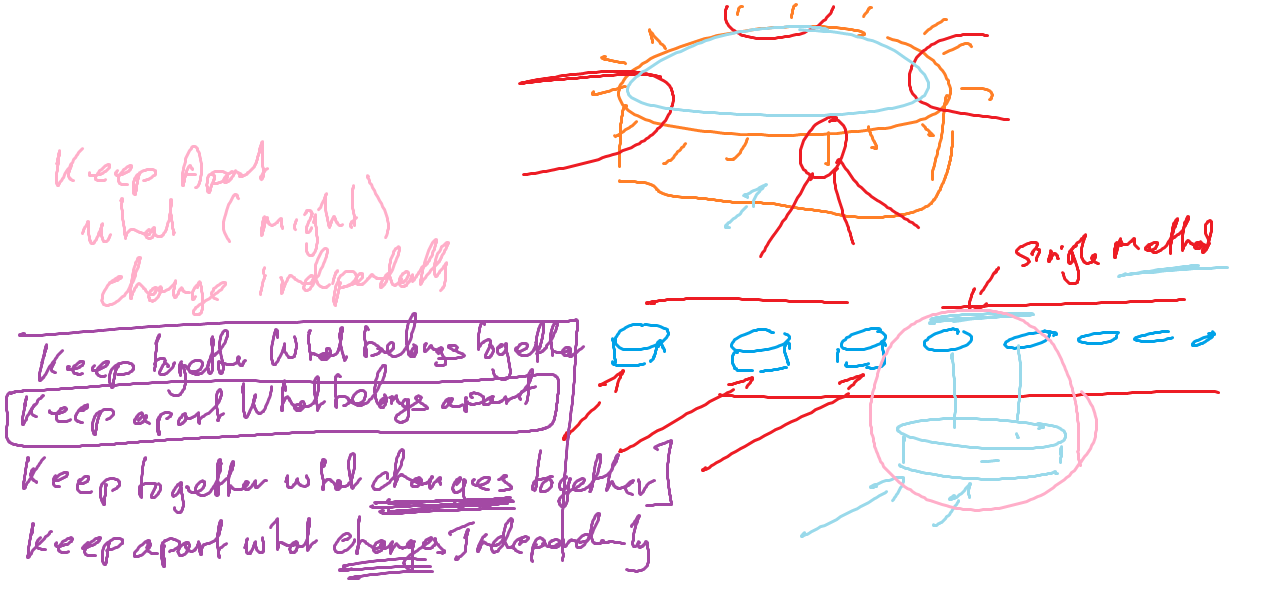 Keep Apart
what (might)
change independently
single method
Keep together What belongs together
Keep apart What belongs apart
Keep together what changes together]
Keep apart what changes Independently